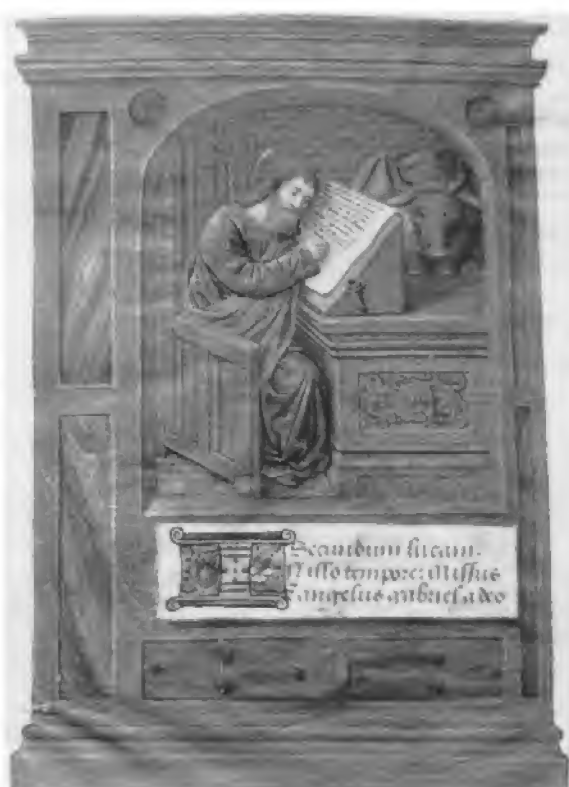 Secundum lucam.
In illo tempore: Missus
est angelus gabriel a deo